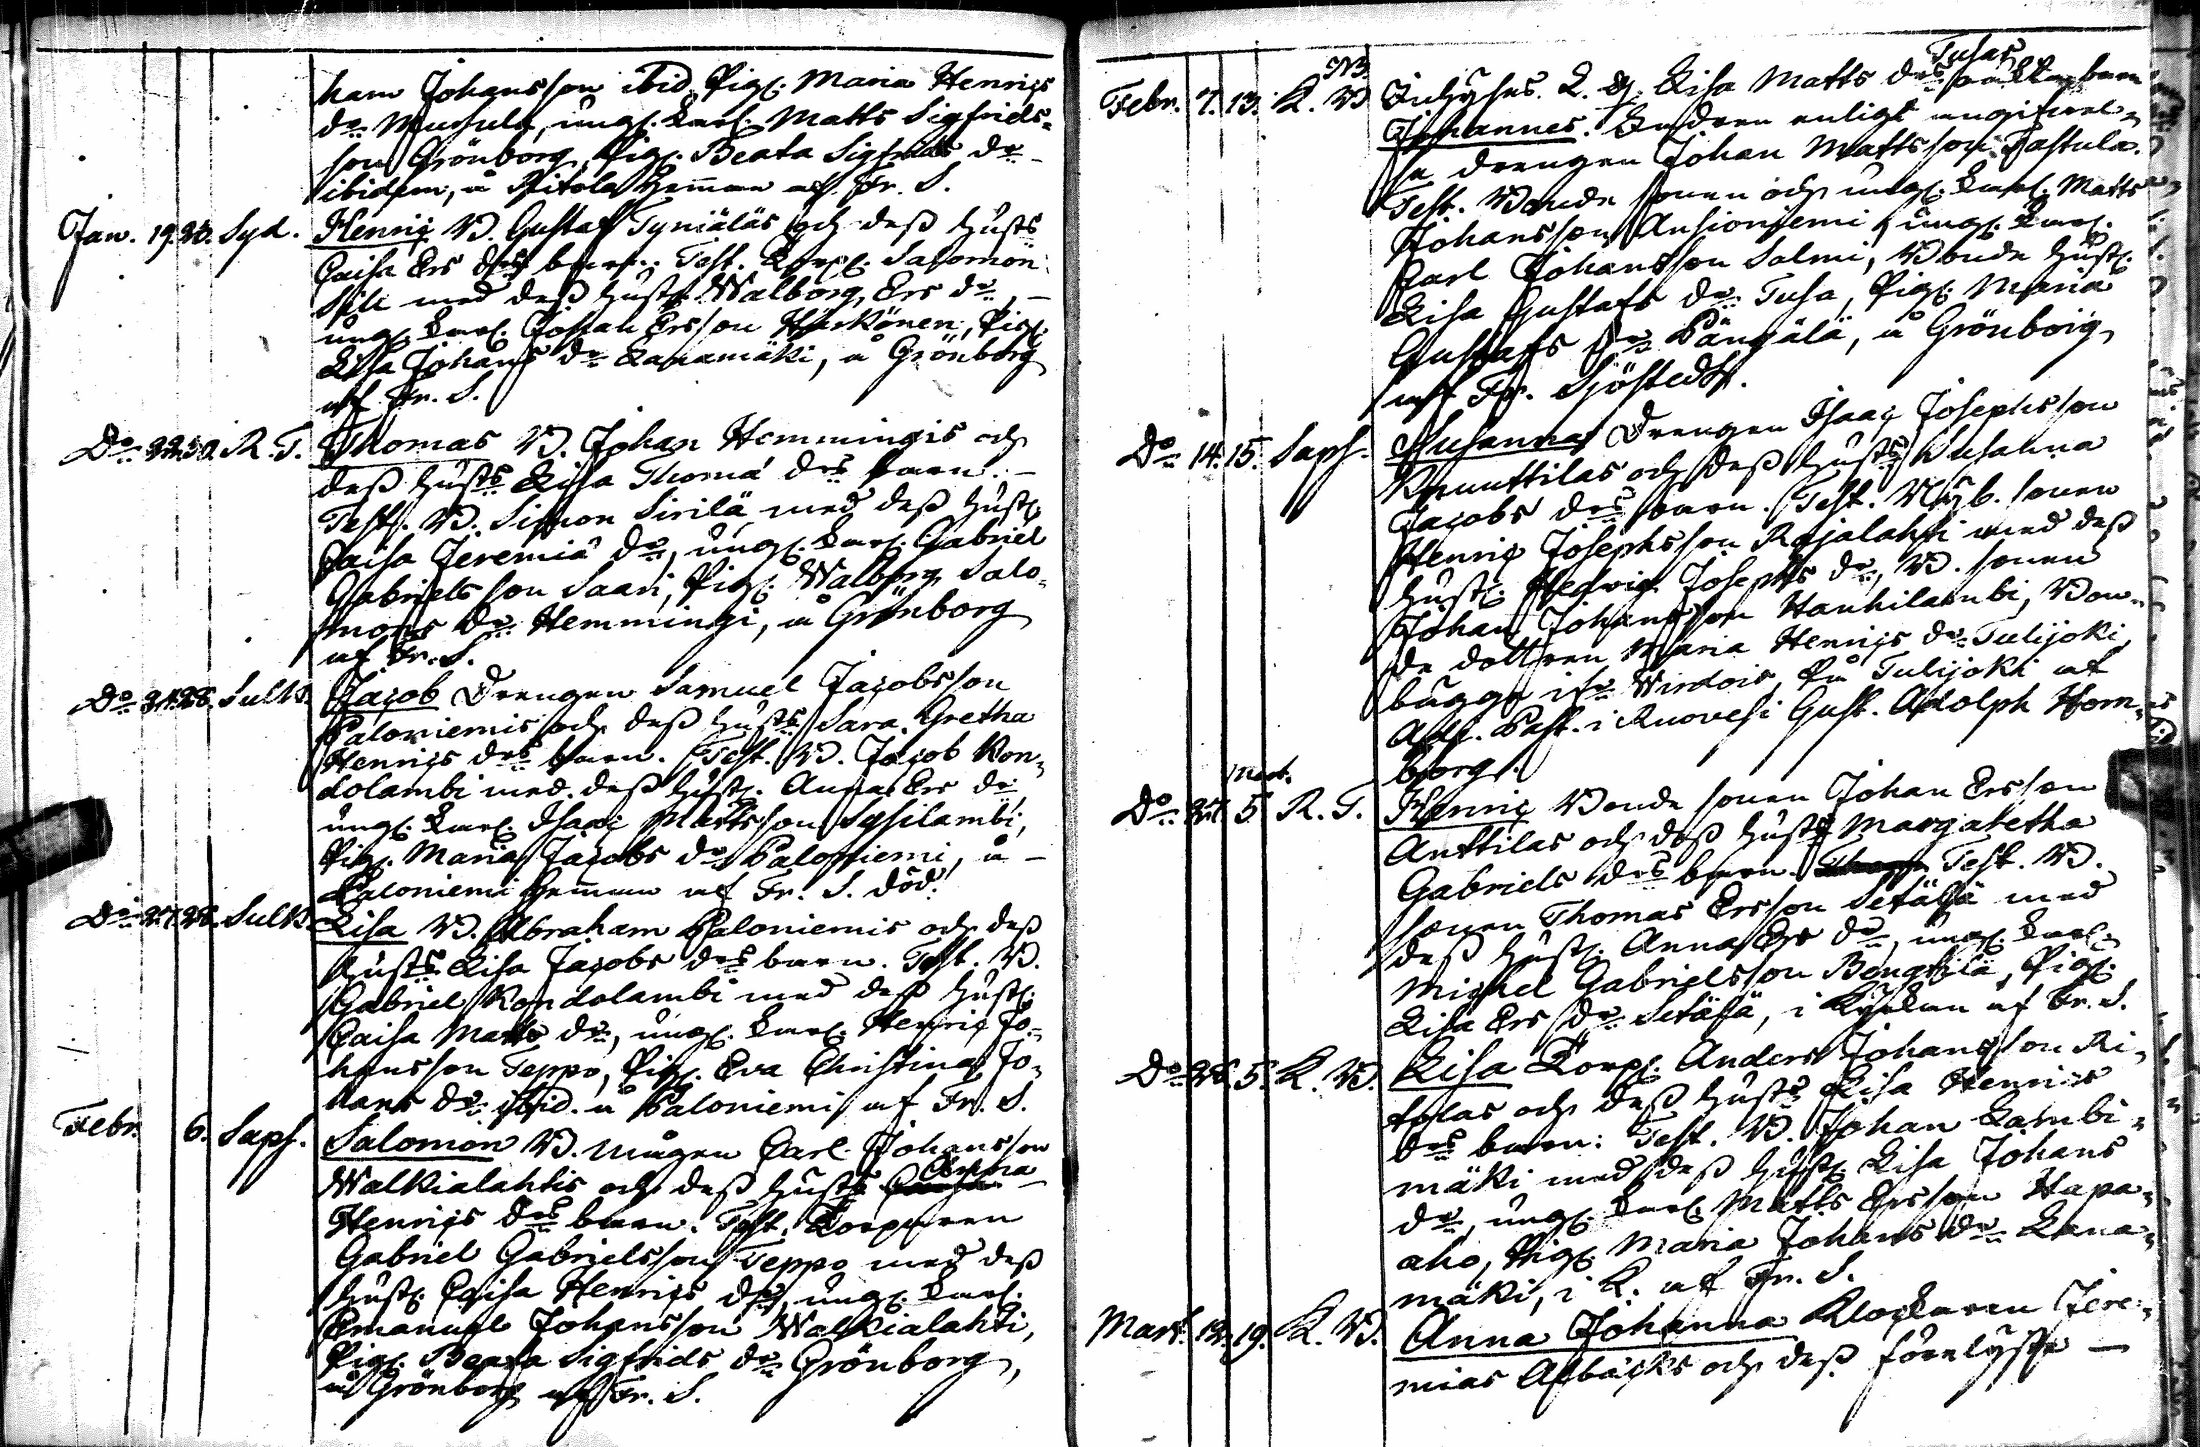 ham Johansson ibid. Pig. Maria Henrics
dr Mursula, ungk. Karl. Matts Sigfrids-
son Grönborg, Pig. Beata Sigfrids dr
ibidem, å Ritola Hemman af Fr. S.
Jan. 19. 20. Syd. Henric B. Gustaf Tyniäläs och dess hustrs
Caisa Ers drs barn. Test. Korpl. Salomon
med dess hustr. Walborg Ers dr, —
ungk. Karl. Johan Ersson Härkönen, Pig.
Lisa Johans dr Kanamäki, å Grönborg
af Fr. S.
Do 22. 30. R. T. Thomas B. Johan Hemmingis och
dess hustrs Lisa Thomæ drs barn. —
Test. B. Simon Sirilä med dess hustr.
Caisa Jeremiæ dr, ungk. Karl. Gabriel
Gabrielsson Saari, Pig. Walborg Salo-
mons dr Hemmingi, å Grönborg
af Fr. S.
Do 21. 28. Sulk. Jacob Drengen Samuel Jacobsson
Paloniemis och dess hustrs Sara Gretha
Henrics drs barn. Test. B. Jacob Kon-
dolambi med dess hustr. Anna Ers dr
ungk. Karl. Isaac Mattsson Sysilambi,
Pig. Maria Jacobs dr Paloniemi, å —
Paloniemi Hemman af Fr. S. död.
Do 27. 28. Sulk. Lisa B. Abraham Paloniemis och dess
hustrs Lisa Jacobs drs barn. Test. B.
Gabriel Kondolambi med dess hustr.
Caisa Matts dr, ungk. Karl. Henric Jo-
hansson Teppo, Pig. Eva Christina Jo-
hans dr ibid. å Paloniemi af Fr. S.
Febr. 6. Saph. Salomon B. mågen Carl Johansson
Walkialahtis och dess hustrs
Henrics drs barn. Test. Korpuren
Gabriel Gabrielsson Teppo med dess
hustr. Caisa Henrics dr, ungk. Karl.
Emanuel Johansson Walkialahti,
Pig. Beata Sigfrids dr Grönborg,
å Grönborg af Fr. S.
NB. Tusas
Febr. 7. 13. K. B. Inhyses Q. P. Lisa Matts drs oäkta barn
Johannes. Fadren enligt angifvel-
se drengen Johan Mattsson Tastula.
Test. Bonde sonen och ungk. Karl. Matts
Johansson Ansionjemi, ungk. Karl.
Carl Johansson Salmi, Bonde hustr.
Lisa Gustafs dr Tusa, Pig. Maria
Gustafs dr Pängälä, å Grönborg
af Fr. Sjöstedt.
Do 14. 15. Saph. Susanna Drengen Isaac Josephsson
Knuuttilas och dess hustrs Susanna
Jacobs drs barn. Test. Nyb. sonen
Henric Josephsson Rajalahti med dess
hustr. Hedvig Josephs dr, B. sonen
Johan Johansson Hauhilambi, Bon-
de dottren Maria Henrics dr Tulijoki,
bägge ifr. Wirdois, på Tulijoki af
Adj. Past. i Ruovesi Gust. Adolph Horn-
borg.
Mart.
Do 27. 5. R. T. Henric Bonde sonen Johan Ersson
Anttilas och dess hustrs Margaretha
Gabriels drs barn. Test. B.
sonen Thomas Ersson Setälä med
dess hustr. Anna Ers dr, ungk. Karl.
Michel Gabrielsson Bengtilä, Pig.
Lisa Ers dr Setälä, i Kyrkan af Fr. S.
Do 28. 5. K. B. Lisa Korpl. Anders Johansson Ri-
tolas och dess hustrs Lisa Henrics
drs barn. Test. B. Johan Lambi-
mäki med dess hustr. Lisa Johans
dr, ungk. Karl. Matts Ersson Hapa-
aho, Pig. Maria Johans dr Kana-
mäki, i K. af Fr. S.
Mart. 12. 19. K. B. Anna Johanna Klockaren Jere-
mias Albäcks och dess förelyste —